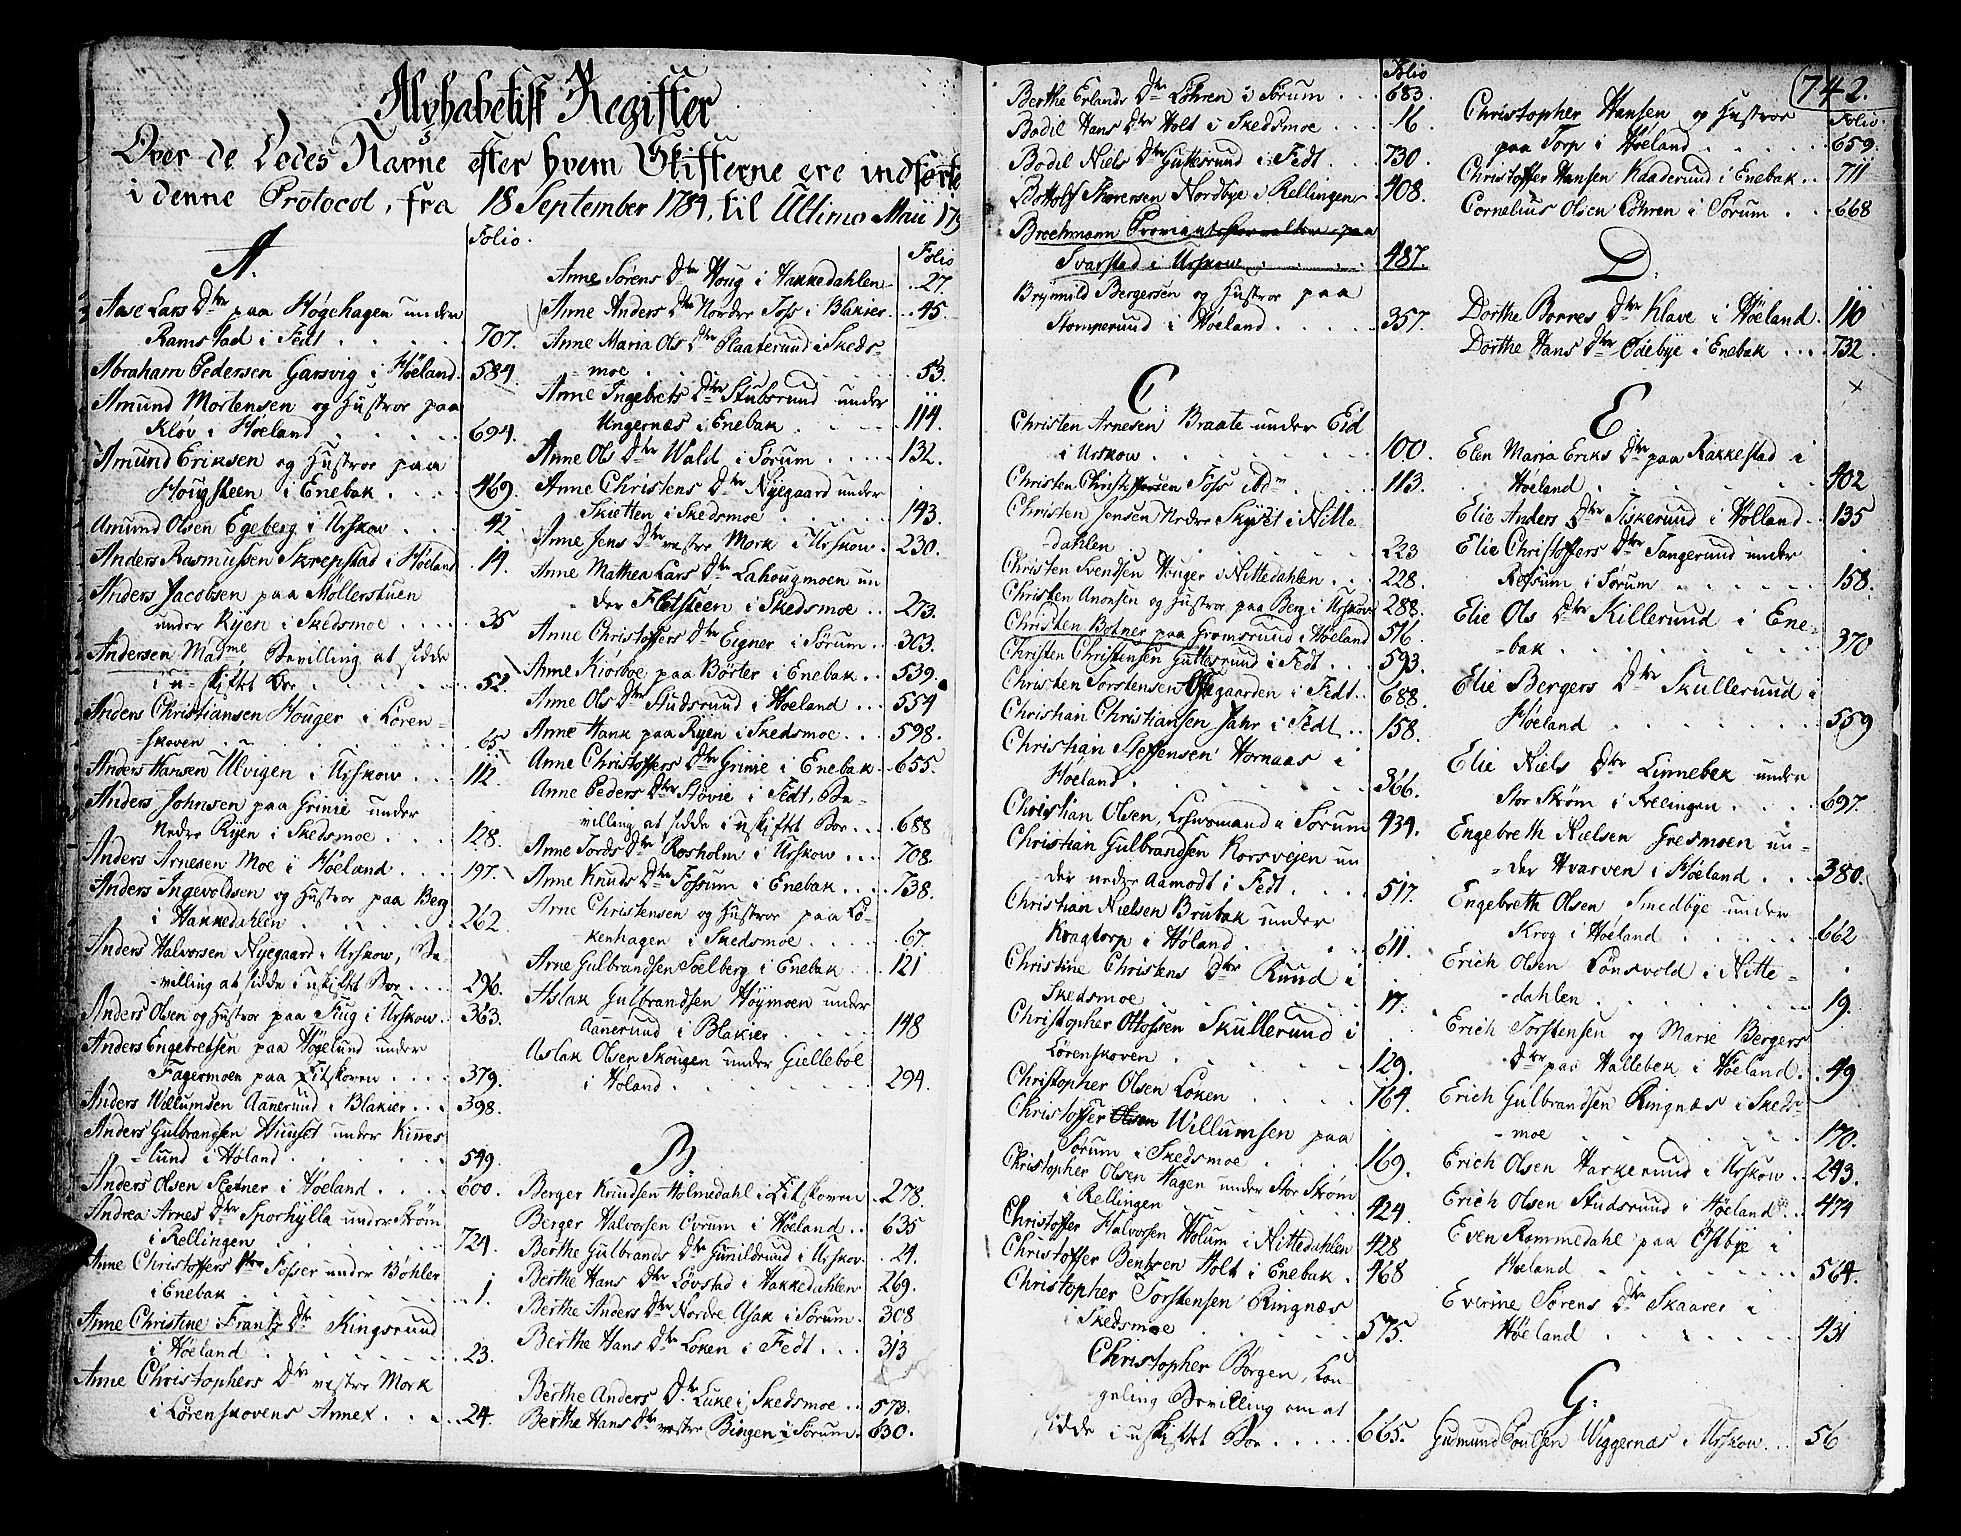 Alphabetisk Register
Over de Dødes Navne efter hvem Skifterne ere indførte
i denne Protocol, fra 18 September 1784, til Ultimo Maii 179
Folio.
A.
Aase Lars Dtr paa Høgehagen under
Ramstad i Fedt . . . . . 707.
Abraham Pedersen Garsvig i Høeland. 584.
Amund Mortensen og Hustroe paa
Kløv i Høeland . . . . . 694.
Amund Eriksen og Hustroe paa
Hougsteen i Enebak . . . . 469.
Amund Olsen Egeberg i Urskow . . 42.
Anders Rasmussen Skrepstad i Høeland 14.
Anders Jacobsen paa Møllerstuen
under Ryen i Skedsmoe . . . . 35
Andersen Madme Bevilling at sidde
i u-skiftet Boe . . . . . 52.
Anders Christiansen Houger i Loren-
-skoven . . . . . 65.
Anders Hansen Ulvigen i Urskow . . . 112.
Anders Johnsen paa Grinie under
Nedre Ryen i Skedsmoe . . . . 128.
Anders Arnesen Moe i Høeland . . . . 197.
Anders Ingevoldsen og Hustroe paa Berg
i Hakkedahlen . . . . . 262.
Anders Halvorsen Nyegaard i Urskow, Be-
-villing at sidde i uskiftet Boe . . . . 296.
Anders Olsen og Hustroe paa Haug i Urskow. 363.
Anders Engebretsen paa Høgelund under
Fagermoen paa Fitskoven . . . . 379.
Anders Willumsen Aannerud i Blakier . . . 398.
Anders Gulbrandsen Huuset under Kinnes-
-lund i Høland . . . . . 549.
Anders Olsen Sletner i Høeland . . . . 600.
Andrea Arnes Dtr Sporhylla under Strøm
i Rellingen . . . . . 724.
Anne Christoffers Dtr Fosser under Bøhler
i Enebak . . . . . 1.
Anne Christine Frantz Dtr Kingsrund
i Høeland . . . . . 23.
Anne Christophers Dtr vestre Mork
i Lørenskovens Annex . . . . 24.
Folio
Anne Sørens Dtr Houg i Hakkedahlen . . 27.
Anne Anders Dtr Nordre Foss i Blakier . . 45.
Anne Maria Ols Dtr Plaaterund i Skeds-
-moe . . . . . 53.
Anne Ingebrets Dtr Stubsrund under
Ungernæs i Enebak . . . . 114.
Anne Ols Dtr Wald i Sørum . . . . 132.
Anne Christens Dtr Nyegaard under
Skietten i Skedsmoe . . . . . 143.
Anne Jens Dtr vestre Mork i Urskow . 230.
Anne Mathea Lars Dtr Lahougmoen un
der Fletsteen i Skedsmoe . . 273.
Anne Christoffers Dtr Eigner i Sørum . . 303.
Anne Kiørboe paa Børter i Enebak . . 539.
Anne Ols Dtr Studsrund i Høeland . . . 554
Anne Hank paa Ryen i Skedsmoe . . . 598.
Anne Christoffers Dtr Grinie i Enebak . . 655.
Anne Peders Dtr Støvie i Fedt, Be-
-villing at sidde i uskiftet Boe . . . 688
Anne Tords Dtr Rosholm i Urskow . . . 708.
Anne Knuds Dtr Fossum i Enebak . . . . 738.
Arne Christensen og Hustroe paa Lø-
kenhagen i Skedsmoe . . . . 67.
Arne Gulbrandsen Soelberg i Enebak . . 121
Aslak Gulbrandsen Høymoen under
Aannerund i Blakier . . . . . 148
Aslak Olsen Skougen under Gielleboe
i Høland . . . . . 294.
B.
Berger Knudsen Holmedahl i Fitskoven 278.
Berger Halvorsen Ovrum i Høeland . . 635
Berthe Gulbrands Dtr Gunildrund i Urskow . 24.
Berthe Hans Dtr Løvstad i Hakkedahlen 269.
Berthe Anders Dtr Nordre Asak i Sørum . 308
Berthe Hans Dtr Loken i Fedt . . . 313
Berthe Anders Dtr Luke i Skedsmoe . . 573.
Berthe Hans Dtr vestre Bingen i Sørum . 630.
Folio
Berthe Erlands Dtr Løhren i Sørum . . . 683.
Bodil Hans Dtr Holt i Skedsmoe . . . . 16.
Bodil Niels Dtr Guttesrund i Fedt . . . 730.
Bottolf Thoresen Nordbye i Rellingen 408.
Brochmann Proviantsforvalter paa
Svarstad i Urskow . . . . . 487.
Brynnild Bergersen og Hustroe paa
Stomperund i Høeland . . . . . 357.
C.
Christen Arnesen Braate under Eid
i Urskow . . . . . 100.
Christen Christoffersen Foss ibdm . . . . 113.
Christen Jensen Nedre Skyset i Nitte-
-dahlen . . . . . 223
Christen Svendsen Houger i Nittedahlen . . . 228.
Christen Anonsen og Hustroe paa Berg i Urskow 288.
Christen Botner paa Gromsrund i Høeland 516.
Christen Christensen Guttesrund i Fedt . . . 593.
Christen Torstensen Ofsegaarden i Fedt . . 688.
Christian Christiansen Jahr i Fedt . . 158.
Christian Steffensen Hornaas i
Høeland . . . . . 366.
Christian Olsen, Lehnsmand i Sørum 434.
Christian Gulbrandsen Korsvejen un
der nedre Aamodt i Fedt . . . . 517.
Christian Nielsen Brubak under
Kragtorp i Høland . . . . . 611.
Christine Christens Dtr Ruud i
Skedsmoe . . . . . 17.
Christopher Ottossen Skullerund i
Lørenskoven . . . . . 129.
Christopher Olsen Loken . . . . . 164.
Christoffer Olsen Willumsen paa
Sørum i Skedsmoe . . . . . 169.
Christopher Olsen Hagen under Stor Strøm
i Rellingen . . . . . 424.
Christoffer Halvorsen Holum i Nittedahlen 428
Christoffer Bentsen Holt i Enebak . 468
Christopher Torstensen Ringnæs
i Skedsmoe . . . . . 575.
Christopher Børgen, Kon-
geling Bevilling om at
sidde i uskiftet Boe . . . . . 665.
742.
Folio
Christopher Hansen og Hustroe
paa Torp i Høeland . . . . . 659.
Christoffer Hansen Kaaderund i Enebak . . 711
Cornelius Olsen Løhren i Sørum . . 668
D.
Dorthe Borres Dtr Klave i Høeland . 110
Dorthe Hans Dtr Odebye i Enebak . . . 732.
E
Elen Maria Eriks Dtr paa Rakkestad i
Høeland . . . . . 402
Elie Anders Dtr Fiskerund i Holland . . 135
Elie Christoffers Dtr Tangerund under
Refsum i Sørum . . . . . 158.
Elie Ols Dtr Killerund i Ene-
-bak . . . . . 370
Elie Bergers Dtr Skullerund i
Høeland . . . . . 559
Elie Niels Dtr Linnebek under
Stor Strøm i Rellingen . . . . 697.
Engebreth Nielsen Gresmoen un-
-der Hvarven i Høeland . . . . 380.
Engebreth Olsen Smedbye under
Krog i Høeland . . . . . 662
Erich Olsen Lønsvold i Nitte-
-dahlen . . . . . 19.
Erich Torstensen og Marie Bergers
Dtr paa Hallebek i Høeland . . 49
Erich Gulbrandsen Ringnæs i Skeds-
-moe . . . . . 170.
Erich Olsen Harkerund i Urskow . . 243.
Erich Olsen Studsrund i Høeland . . 474
Even Rommedahl paa Østbye i
Høeland . . . . . 564.
Everine Sørens Dtr Skaarer i
Høeland . . . . . 431
G.
Gudmund Poulsen Wiggernæs i Urskow . . . 56